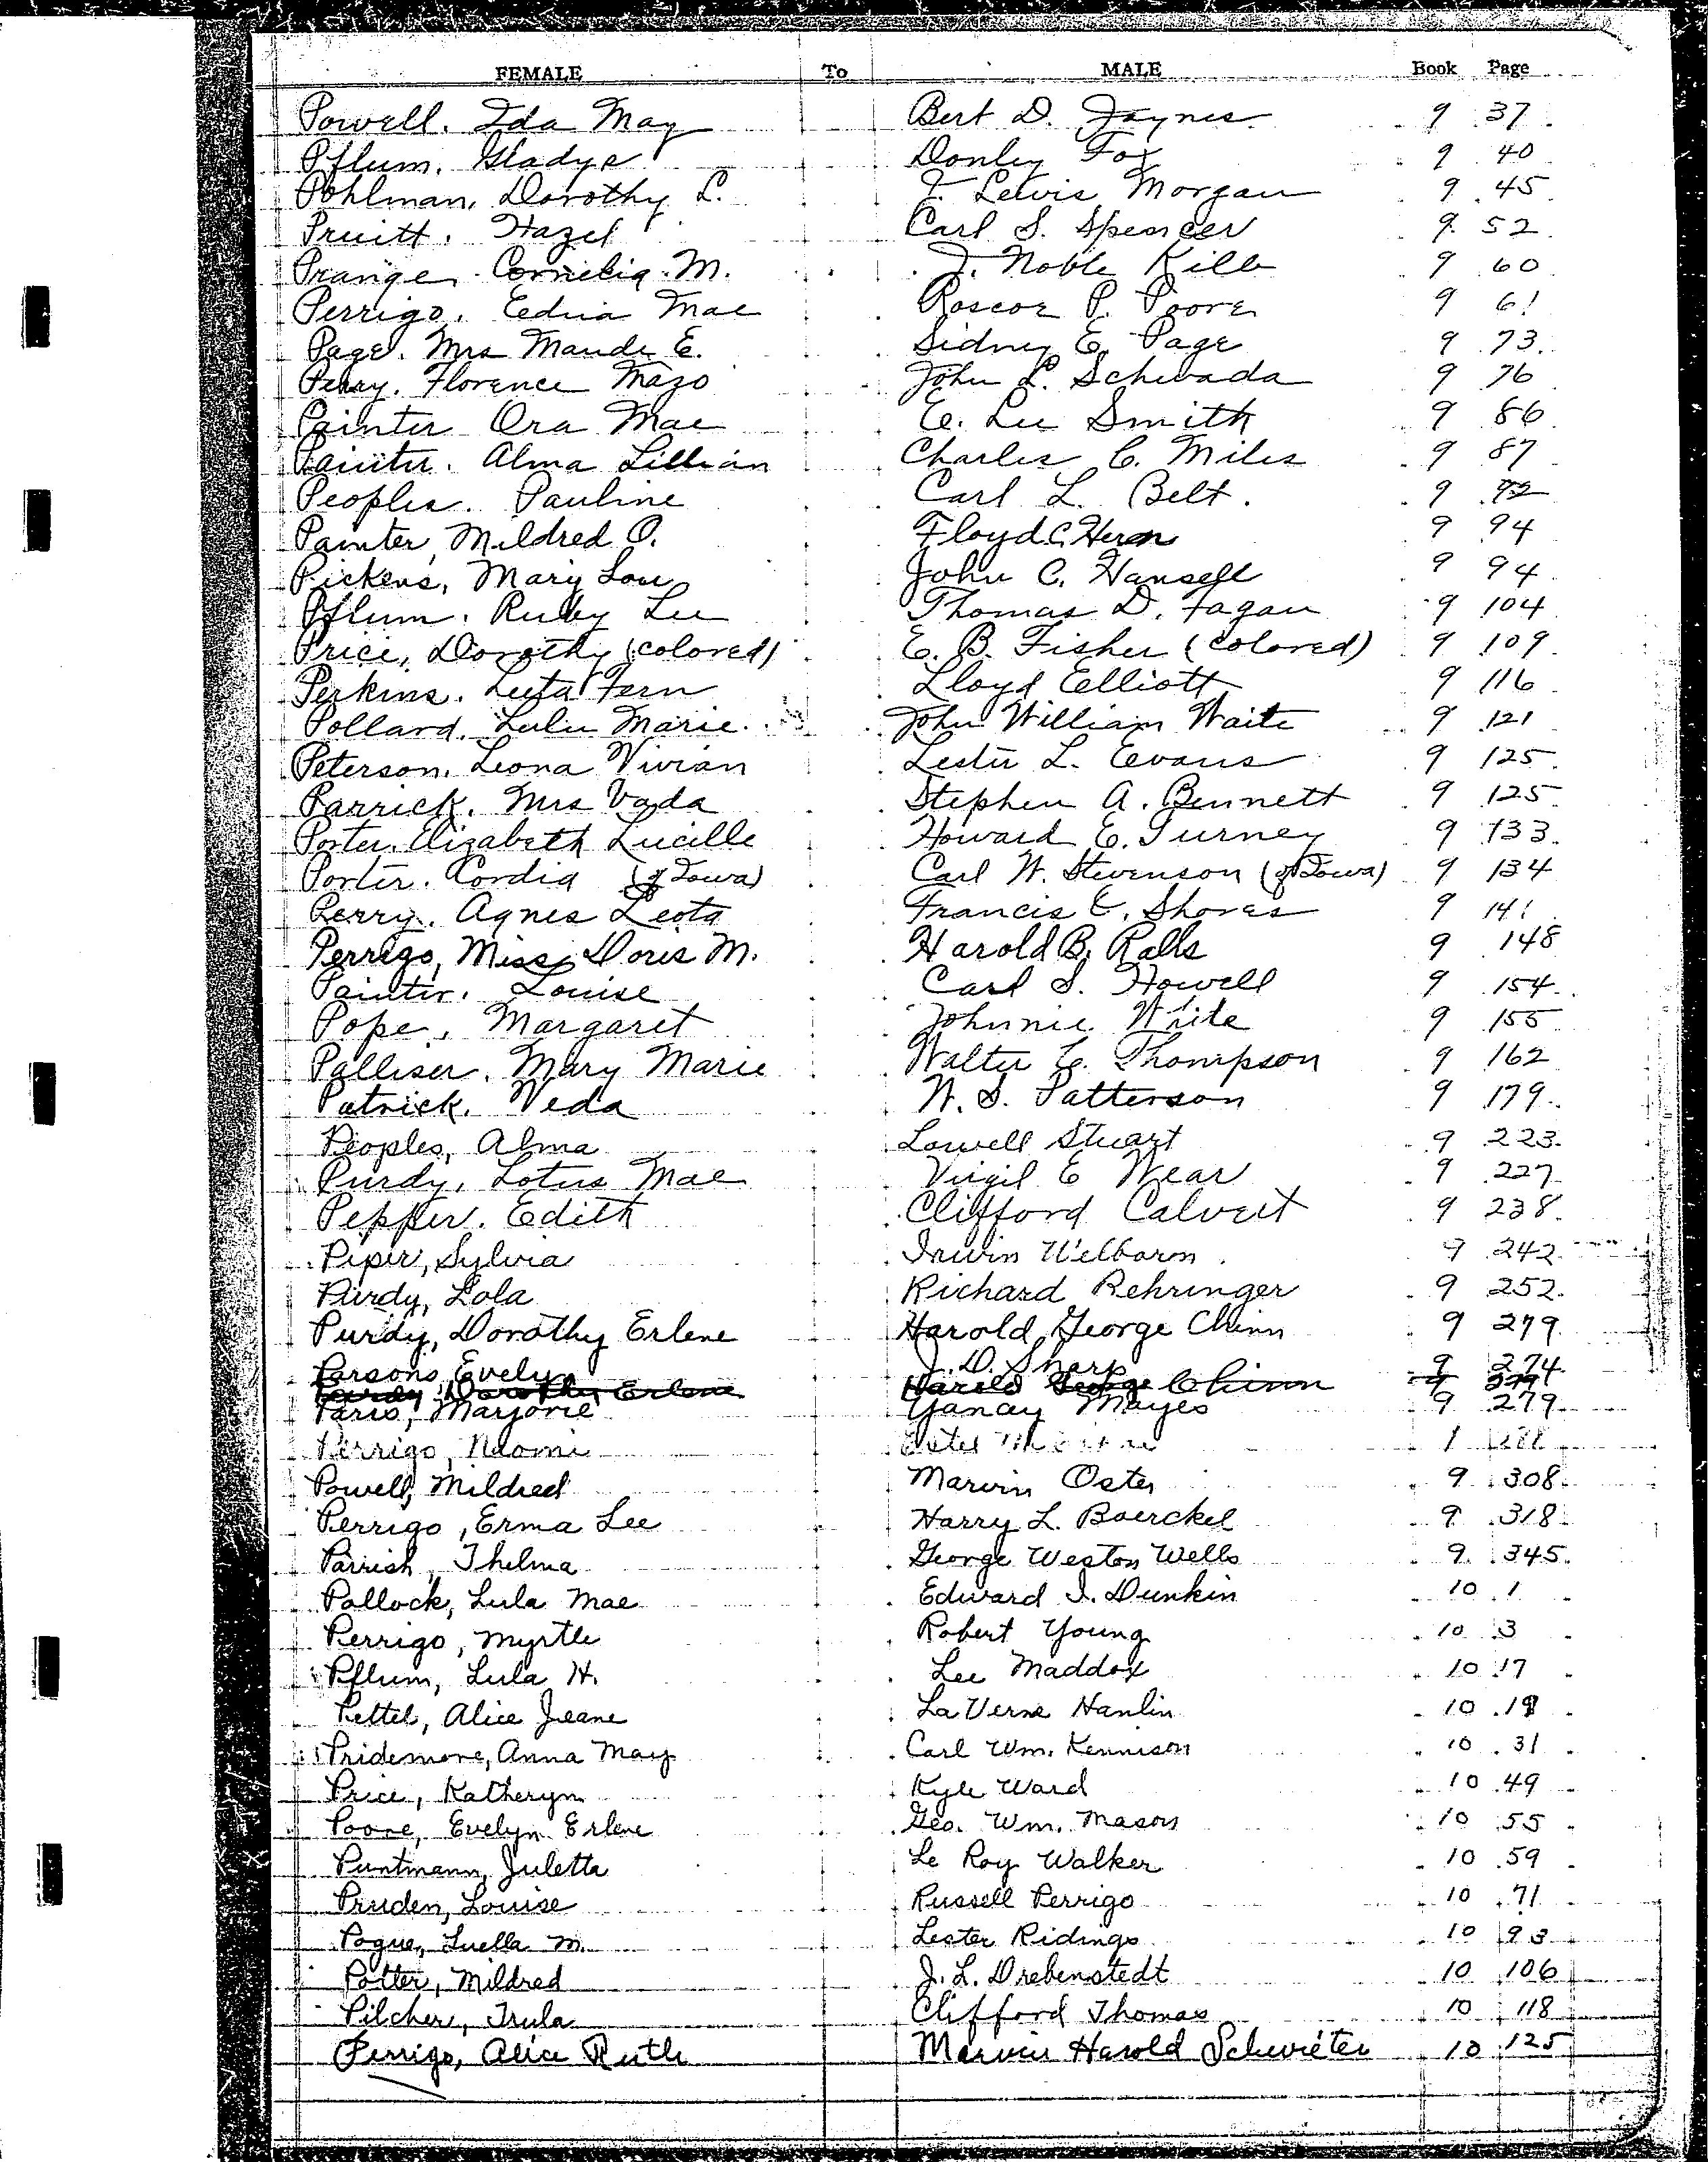 FEMALE To MALE Book Page
Powell. Ida May Bert D. Jaynes 9 37
Pflum. Gladys Donley Fox 9 40
Pohlman. Dorothy L. J. Lewis Morgan 9 45
Pruitt. Hazel Carl S. Spencer 9 52
Prange. Cornelia M. J. Noble Kille 9 60
Perrigo. Edna Mae Roscoe P. Poore 9 61
Page. Mrs Maude E. Sidney E. Page 9 73
Perry. Florence Mazo John L. Schwada 9 76
Painter Ora Mae E. Lee Smith 9 86
Painter. Alma Lillian Charles C. Miles 9 87
Peoples. Pauline Carl L. Belt. 9 92
Painter, Mildred O. Floyd C. Heron 9 94
Pickens, Mary Lou John C. Hansell 9 94
Pflum. Ruby Lee Thomas D. Fagan 9 104
Price, Dorothy (colored) E. B. Fisher (colored) 9 109
Perkins. Leeta Fern Lloyd Elliott 9 116
Pollard. Lulu Marie. John William Waite 9 121
Peterson. Leona Vivian Lester L. Evans 9 125
Parrick. Mrs Vada Stephen A. Bennett 9 125
Porter. Elizabeth Lucille Howard E. Turney 9 133
Porter. Cordia (of Iowa) Carl W. Stevenson (of Iowa) 9 134
Perry. Agnes Leota Francis E. Shores 9 141
Perrigo, Miss Doris M. Harold B. Ralls 9 148
Painter. Louise Carl S. Howell 9 154
Pope, Margaret Johnnie White 9 155
Palliser. Mary Marie Walter E. Thompson 9 162
Patrick. Veda W. S. Patterson 9 179
Peoples, Alma Lowell Stuart 9 223
Purdy, Lotus Mae Virgil E Wear 9 227
Pepper. Edith Clifford Calvert 9 238
Piper, Sylvia Irwin Welborn 9 242
Purdy, Lola Richard Rehringer 9 252
Purdy, Dorothy Erlene Harold George Chinn 9 279
Parsons Evelyn J. D. Sharp 9 274
Purdy Dorothy Erlene Harold George Chinn 9 279
Paris, Marjorie Yancy Mayes 9 279
Perrigo, Naomi Estel
Powell, Mildred Marvin Oster 9 308
Perrigo, Erma Lee Harry L. Boerckel 9 318
Parrish, Thelma George Weston Wells 9 345
Pollock, Lula Mae Edward I. Dunkin 10 1
Perrigo, Myrtle Robert Young 10 3
Pflum, Lula H. Lee Maddox 10 17
Pettel, Alice Jeane LaVerne Hanlin 10 19
Pridemore, Anna May Carl Wm. Kennison 10 31
Price, Katheryn Kyle Ward 10 49
Poore, Evelyn Erlene Geo. Wm. Mason 10 55
Puntmann, Juletta Le Roy Walker 10 59
Pruden, Louise Russell Perrigo 10 71
Pogue, Luella M. Lester Ridings 10 93
Potter, Mildred J. L. Drebenstedt 10 106
Pilcher, Trula Clifford Thomas 10 118
Perrigo, Alice Ruth Marvin Harold Schwieter 10 125